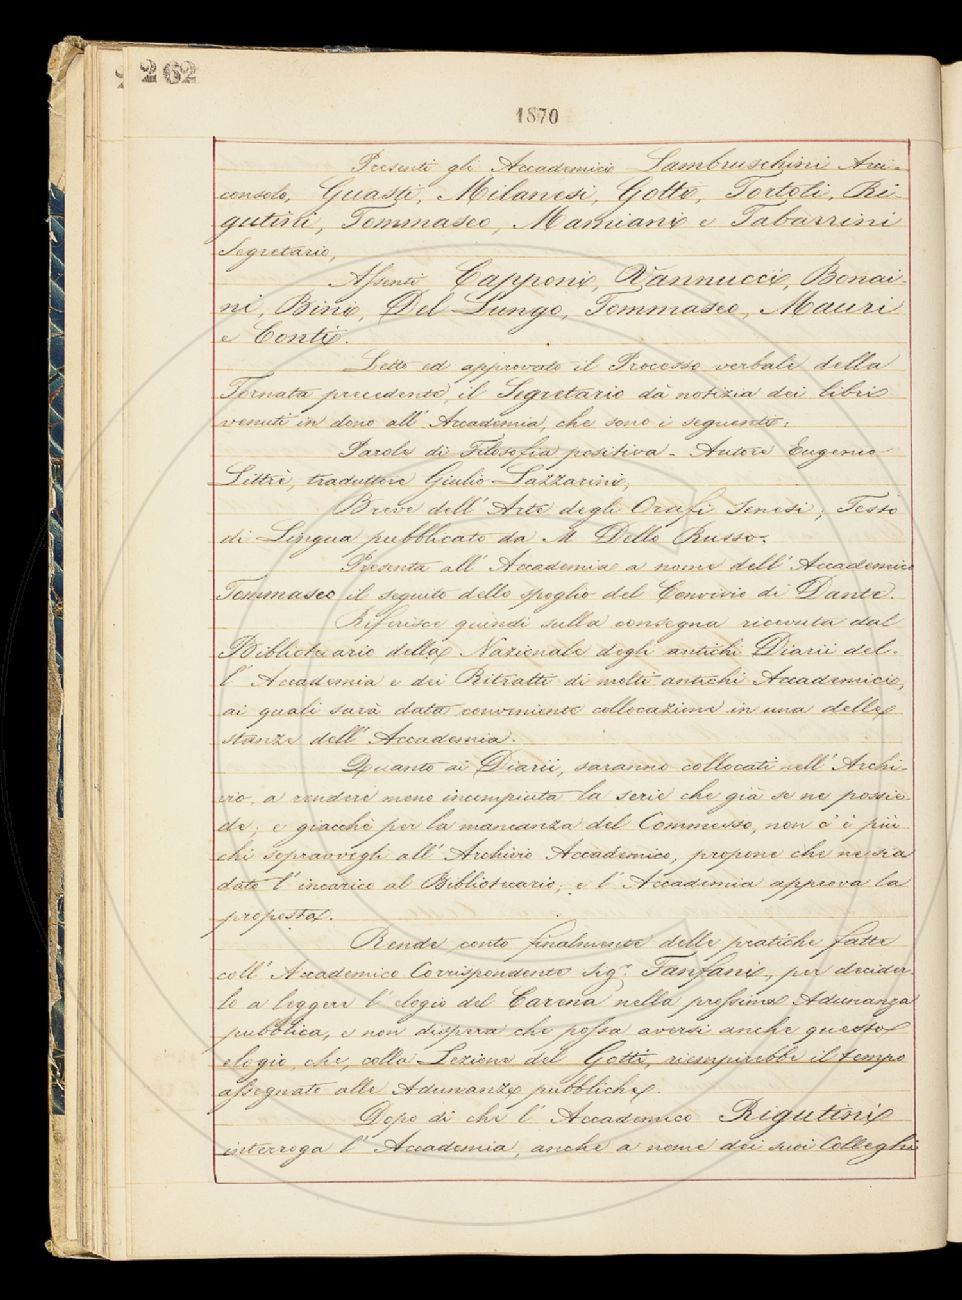 262
1870
Presenti gli Accademici Lambruschini Arci-
consolo, Guasti, Milanesi, Gotti, Tortoli, Ri-
gutini, Tommaseo, Mamiani e Tabarrini
Segretario,
Assenti Capponi, Vannucci, Bonai-
ni, Bini, Del Lungo, Tommaseo, Mauri
e Conti.
Letto ed approvato il Processo verbale della
Tornata precedente, il Segretario dà notizia dei libri
venuti in dono all' Accademia, che sono i seguenti:
Parole di Filosofia positiva - Autore Eugenio
Littrè, traduttore Giulio Lazzarini,
Breve dell' Arte degli Orafi Senesi; Testo
di Lingua pubblicato da M. Dello Russo.
Presenta all' Accademia a nome dell' Accademico
Tommaseo il seguito dello spoglio del Convivio di Dante.
Riferisce quindi sulla consegna ricevuta dal
Bibliotecario della Nazionale degli antichi Diarii del-
l' Accademia e dei Ritratti di molti antichi Accademici,
ai quali sarà data conveniente collocazione in una delle
stanze dell' Accademia.
Quanto ai Diarii, saranno collocati nell' Archi-
vio, a rendere meno incompiuta la serie che già se ne possie
de; e giacchè per la mancanza del Commesso, non c' è più
chi sopravvegli all' Archivio Accademico, propone che ne sia
dato l' incarico al Bibliotecario; e l' Accademia approva la
proposta.
Rende conto finalmente delle pratiche fatte
coll' Accademico Corrispondente Sig.r Fanfani, per decider
lo a leggere l' elogio del Carena nella prossima Adunanza
pubblica, e non dispera che possa aversi anche questo
elogio, che, colla Lezione del Gotti, riempirebbe il tempo
assegnato alle Adunanze pubbliche.
Dopo di che l' Accademico Rigutini
interroga l' Accademia, anche a nome dei suoi Colleghi